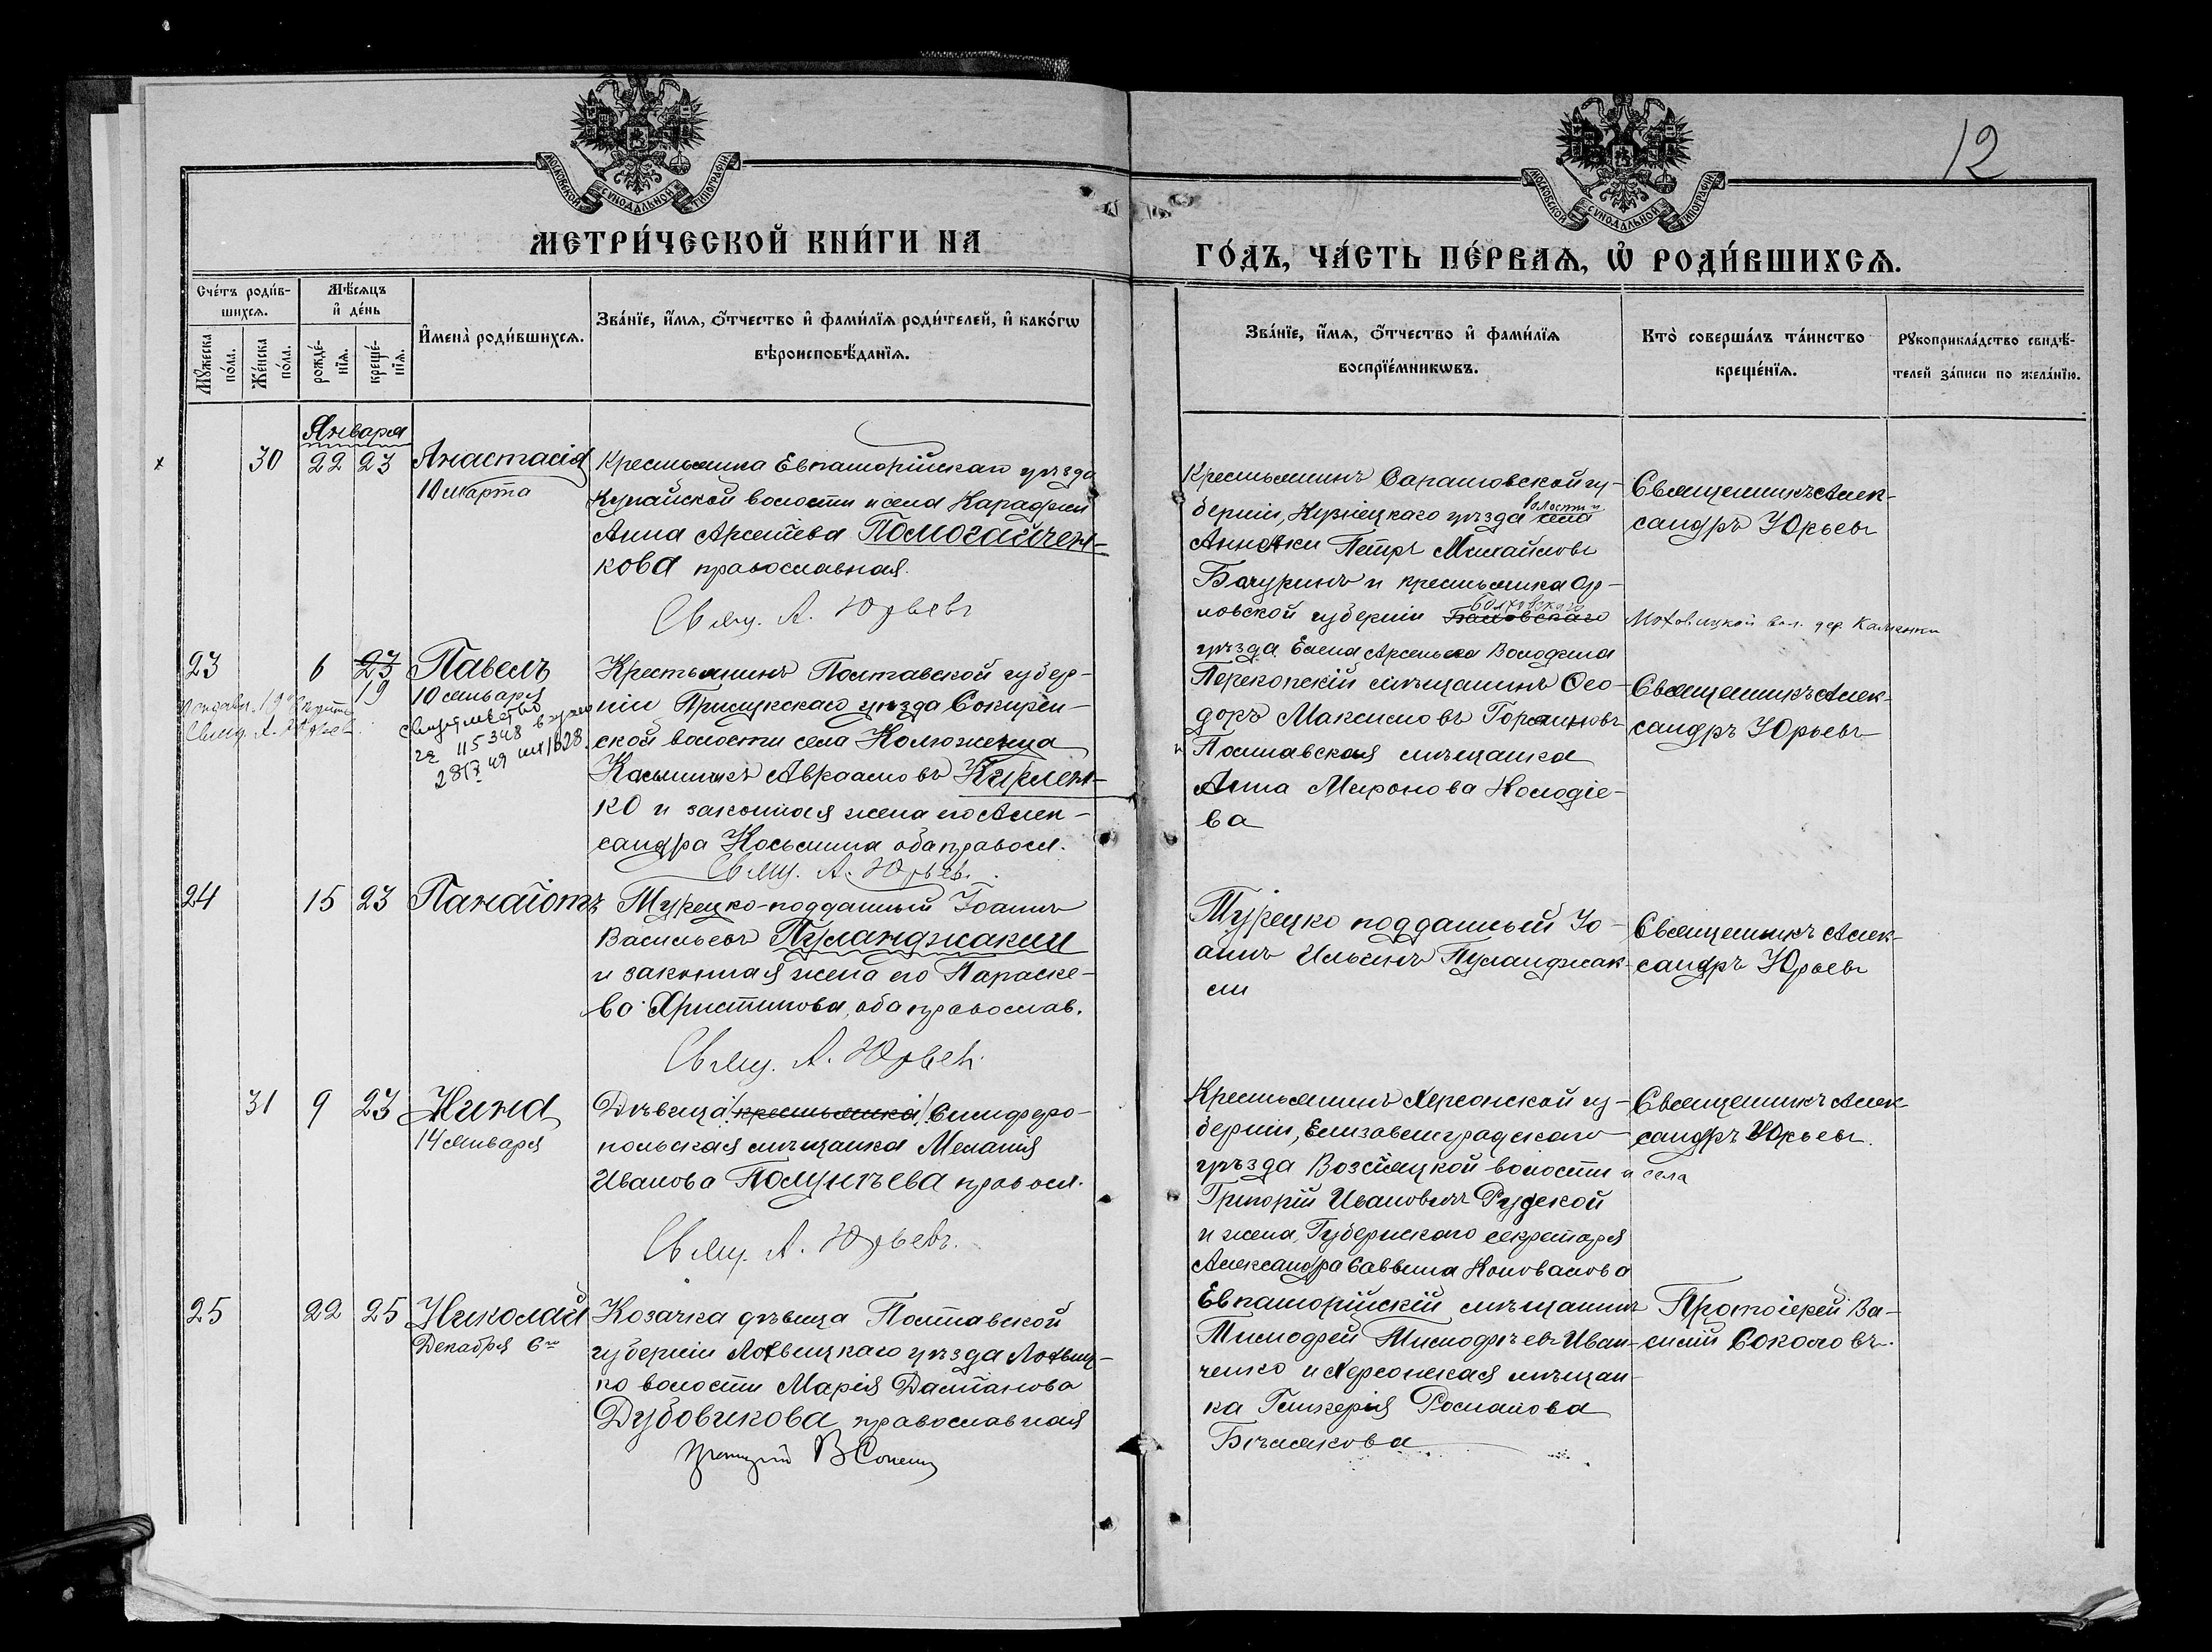 12
МОСКОВСКОЙ СУНОДАЛЬНОЙ ТИПОГРАФІИ
МОСКОВСКОЙ СУНОДАЛЬНОЙ ТИПОГРАФІИ
МЕТРИ́ЧЕСКОЙ КНИ́ГИ НА
ГО́ДЪ, ЧА́СТЬ ПЕ́РВАѦ, Ѡ҆ РОДИ́ВШИХСѦ.
Сче́тъ роди́в-
шихсѧ.
Мѣ́сѧцъ
и҆ де́нь
Мꙋ́жеска
по́ла.
Же́нска
по́ла.
рожде́-
нїѧ.
креще́-
нїѧ.
И҆мена̀ роди́вшихсѧ.
Зва́нїе, и҆́мѧ, ѻ҆́тчество и҆ фами́лїѧ роди́телей, и҆ како́гѡ
вѣроисповѣ́данїѧ.
Зва́нїе, и҆́мѧ, ѻ҆́тчество и҆ фами́лїѧ
воспрїе́мникѡвъ.
Кто̀ соверша́лъ та́инство
креще́нїѧ.
Рꙋкоприкла́дство свидѣ́-
телей за́писи по жела́нїю.
Января
30 22 23 Анастасія
10 марта
Крестьянка Евпаторійскаго уѣзда
волости и села
Анна Арсеніева Помогайчен-
кова православная.
Свящ. А. Юрьевъ
Крестьянинъ Саратовской гу-
берніи, Кузнецкаго уѣзда села
волости и
Анненки Петръ Михайловъ
Бачуринъ и крестьянка Ор-
ловской губерніи
Болховскаго
уѣзда Елена Арсеньева Володина
Священникъ Алек-
сандръ Юрьевъ
вол. дер. Каменки
23 6 23 Павелъ
19
10 января
свидѣтельство
за 115348
Свящ. А. Юрьевъ
Крестьянинъ Полтавской губер-
ніи Прилукскаго уѣзда Сокирен-
ской волости села
Аврамовъ Киріен-
ко и законная жена его Алек-
сандра Косьмина оба правосл.
Свящ. А. Юрьевъ.
Перекопскій мѣщанинъ Ѳео-
доръ Максимовъ
и Полтавская мѣщанка
Анна Миронова Колодіе-
ва
Священникъ Алек-
сандръ Юрьевъ
24 15 23 Панаіотъ
Турецко-подданный Іоаннъ
Васильевъ Пуланджакли
и законная жена его Параске-
ва Христинова, оба православ.
Свящ. А. Юрьевъ.
Турецко подданный Іо-
аннъ Ильинъ Пуланджак-
ли
Священникъ Алек-
сандръ Юрьевъ
31 9 23 Нина
14 января
Дѣвица крестьянка Симферо-
польская мѣщанка Меланія
Иванова Полунѣева правосл.
Свящ. А. Юрьевъ.
Крестьянинъ Херсонской гу-
берніи, Елизаветградскаго
уѣзда Возсіяцкой волости и села
Григорій Ивановичъ Рудской
и жена Губернскаго секретаря
Александра Саввина Коновалова
Священникъ Алек-
сандръ Юрьевъ.
25 22 25 Николай
Декабря 6го
Козачка дѣвица Полтавской
губерніи Лохвицкаго уѣзда Лохвиц-
ко волости Марія Даміанова
Дубовикова православная
Евпаторійскій мѣщанинъ
Тимофей Тимофѣевъ Иван-
ченко и Херсонская мѣщан-
ка Гликерія Романова
Бѣлякова
Протоіерей Ва-
силій Соколовъ.